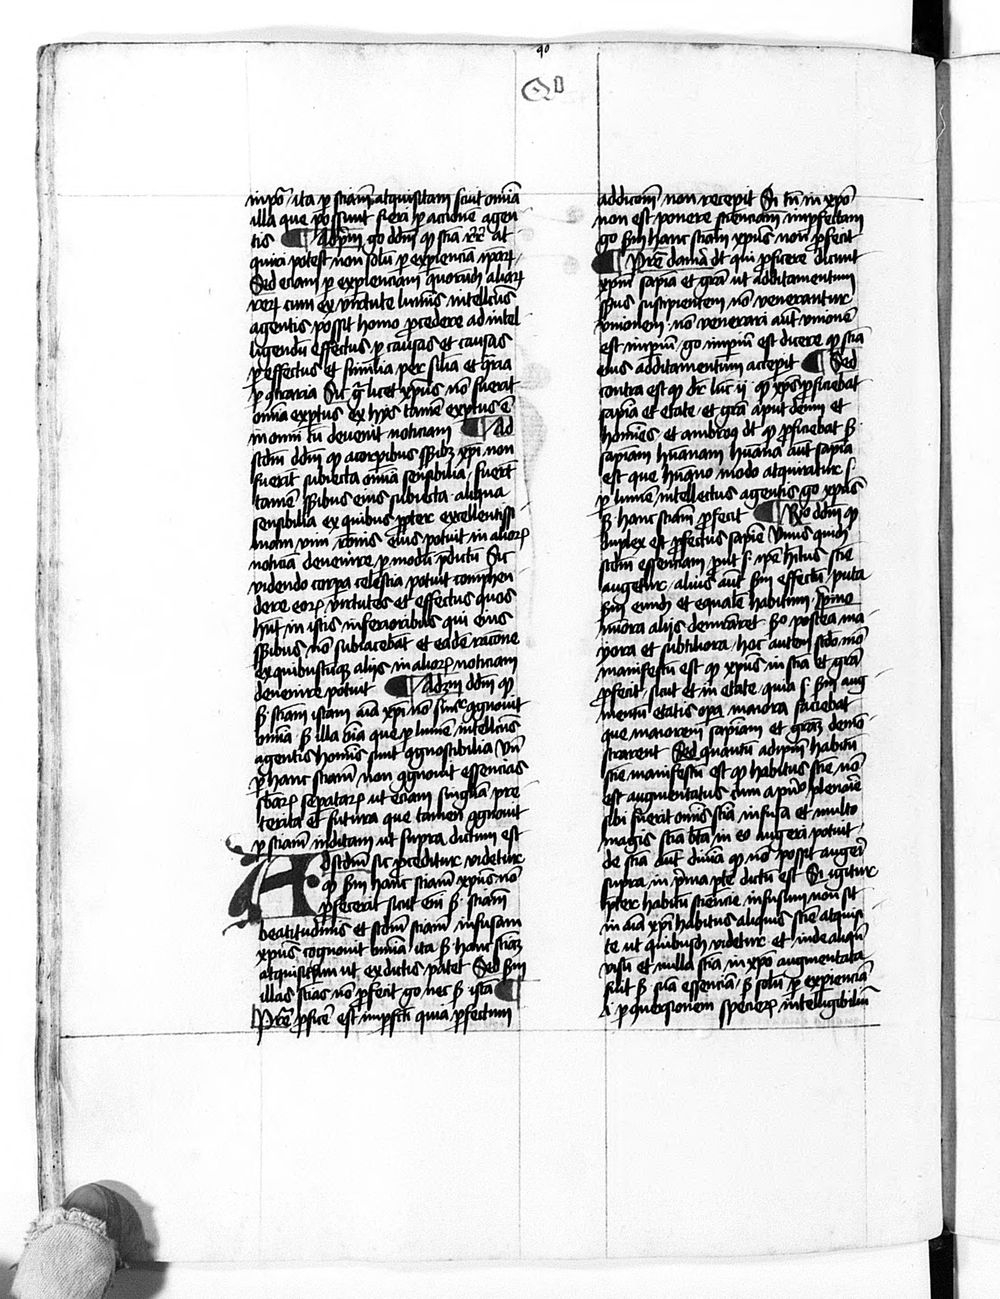 qo
Q 1
in xpo ita ꝑ sciam acquisitam sciuit omnia
illa que possunt fieri ꝑ actione agen
tis ¶ Ad pm go ddm ꝙ scia rerum at
quiri potest non solu ꝑ experiencia ipar
Sed eciam ꝑ experienciam quorundam aliarum
rerum cum ex virtute luminis intellctus
agentis possit homo procedere ad intel
ligendu effectus ꝑ causas et causas
ꝑ effectus et similia per silia et qria
ꝑ qtraria Sic g licet xpus no fuerit
omnia exptus ex hijs tamen exptus e
in omni tn deuenit noticiam ¶ Ad
scdm ddm ꝙ a corpibus sensibus xpi non
fuerit subiecta omnia sensibilia fuerit
tamen sensibus eius subiecta aliqua
sensibilia ex quibus ꝓpter excellentissi
mam vim rōnis eius potuit in aliorum
noticia deuenire ꝑ modu pdictu Sic
videndo corpa celestia potuit comphen
dere eorum virtutes et effectus quos
hnt in istis inferioribus qui eius
sensibus non subiacebat et eadem racione
ex quibuscumq alijs in aliorum noticiam
deuenire potuit ¶ Ad 3m ddm ꝙ
scdm sciam istam aia xpi no simpr qgnouit
omnia sed illa oia que ꝑ lumen intellctus
agentis hominis sunt qgnoscibilia Vn
ꝑ hanc sciam non qgnouit essencias
sbarum sepatarum ut eciam singlaria pre
terita et futura que tamen qgnouit
ꝑ sciam inditam ut supra dictum est
Ad scdm sic proceditur videtur
ꝙ scdm hanc sciam xpus no
ꝓfecerit sicut eni scdm sciam
beatitudinis et scdm sciam infusam
xpus cognouit omnia ita scdm hanc sciam
atquisitam ut ex dictis patet Sed scdm
illas scias no ꝓfecit go nec scdm ista ¶
Pre ꝓficere est impfecti quia ꝑfectum
addicoem non recepit Si tn in xpo
non est ponere scienciam impfectam
go scdm hanc sciam xpus non ꝓfecit
¶ Pre dama dt qui ꝓficere dicunt
xpm sapia et gra ut additamentum
ipsius suscipientem no venerantur
vnionem no venerari aut vnione
est impiu go impiu est dicere ꝙ scia
eius additamentum accepit ¶ Sed
contra est ꝙ dr luc ij ꝙ xps ꝓficiebat
sapia et etate et gra aput deum et
homines et ambros dt ꝙ ꝓficiebat scdm
sapiam humanam humana aut sapia
est que humano modo atquiratur s
ꝑ lumen intellectus agentis go xpus
scdm hanc sciam ꝓfecit ¶ Rio ddm ꝙ
duplex est ꝓfectus sapie vnus quidem
scdm essentiam prout s ipe hitus scie
augetur alius aut scdm effectu puta
scdm eundem et equale habitum primo
minora alijs demraret et postea ma
yora et subtiliora hoc autem scdo mo
manifestu est ꝙ xpus in scia et gra
ꝓfecit sicut et in etate quia s scdm aug
mentu etatis opa maiora faciebat
que maiorem sapiam et gram demo
strarent Sed quantu ad ipm habitu
scie manifestu est ꝙ habitus scie no
est augmentatus cum a pno plenarie
sibi fuerit omis scia infusa et multo
magis scia bta in eo augeri potuit
de scia aut diuina ꝙ no possit augeri
supra in prima pte dictu est Si igitur
preter habitu sciencie infusum non sit
in aia xpi habitus aliquis scie atquisi
te ut quibusdam videtur et inde aliquando
visu et nulla scia in xpo augmentata
fuit scdm sua essencia scdm solu ꝑ experiencia
i ꝑ quersionem specierum intelligibiliu